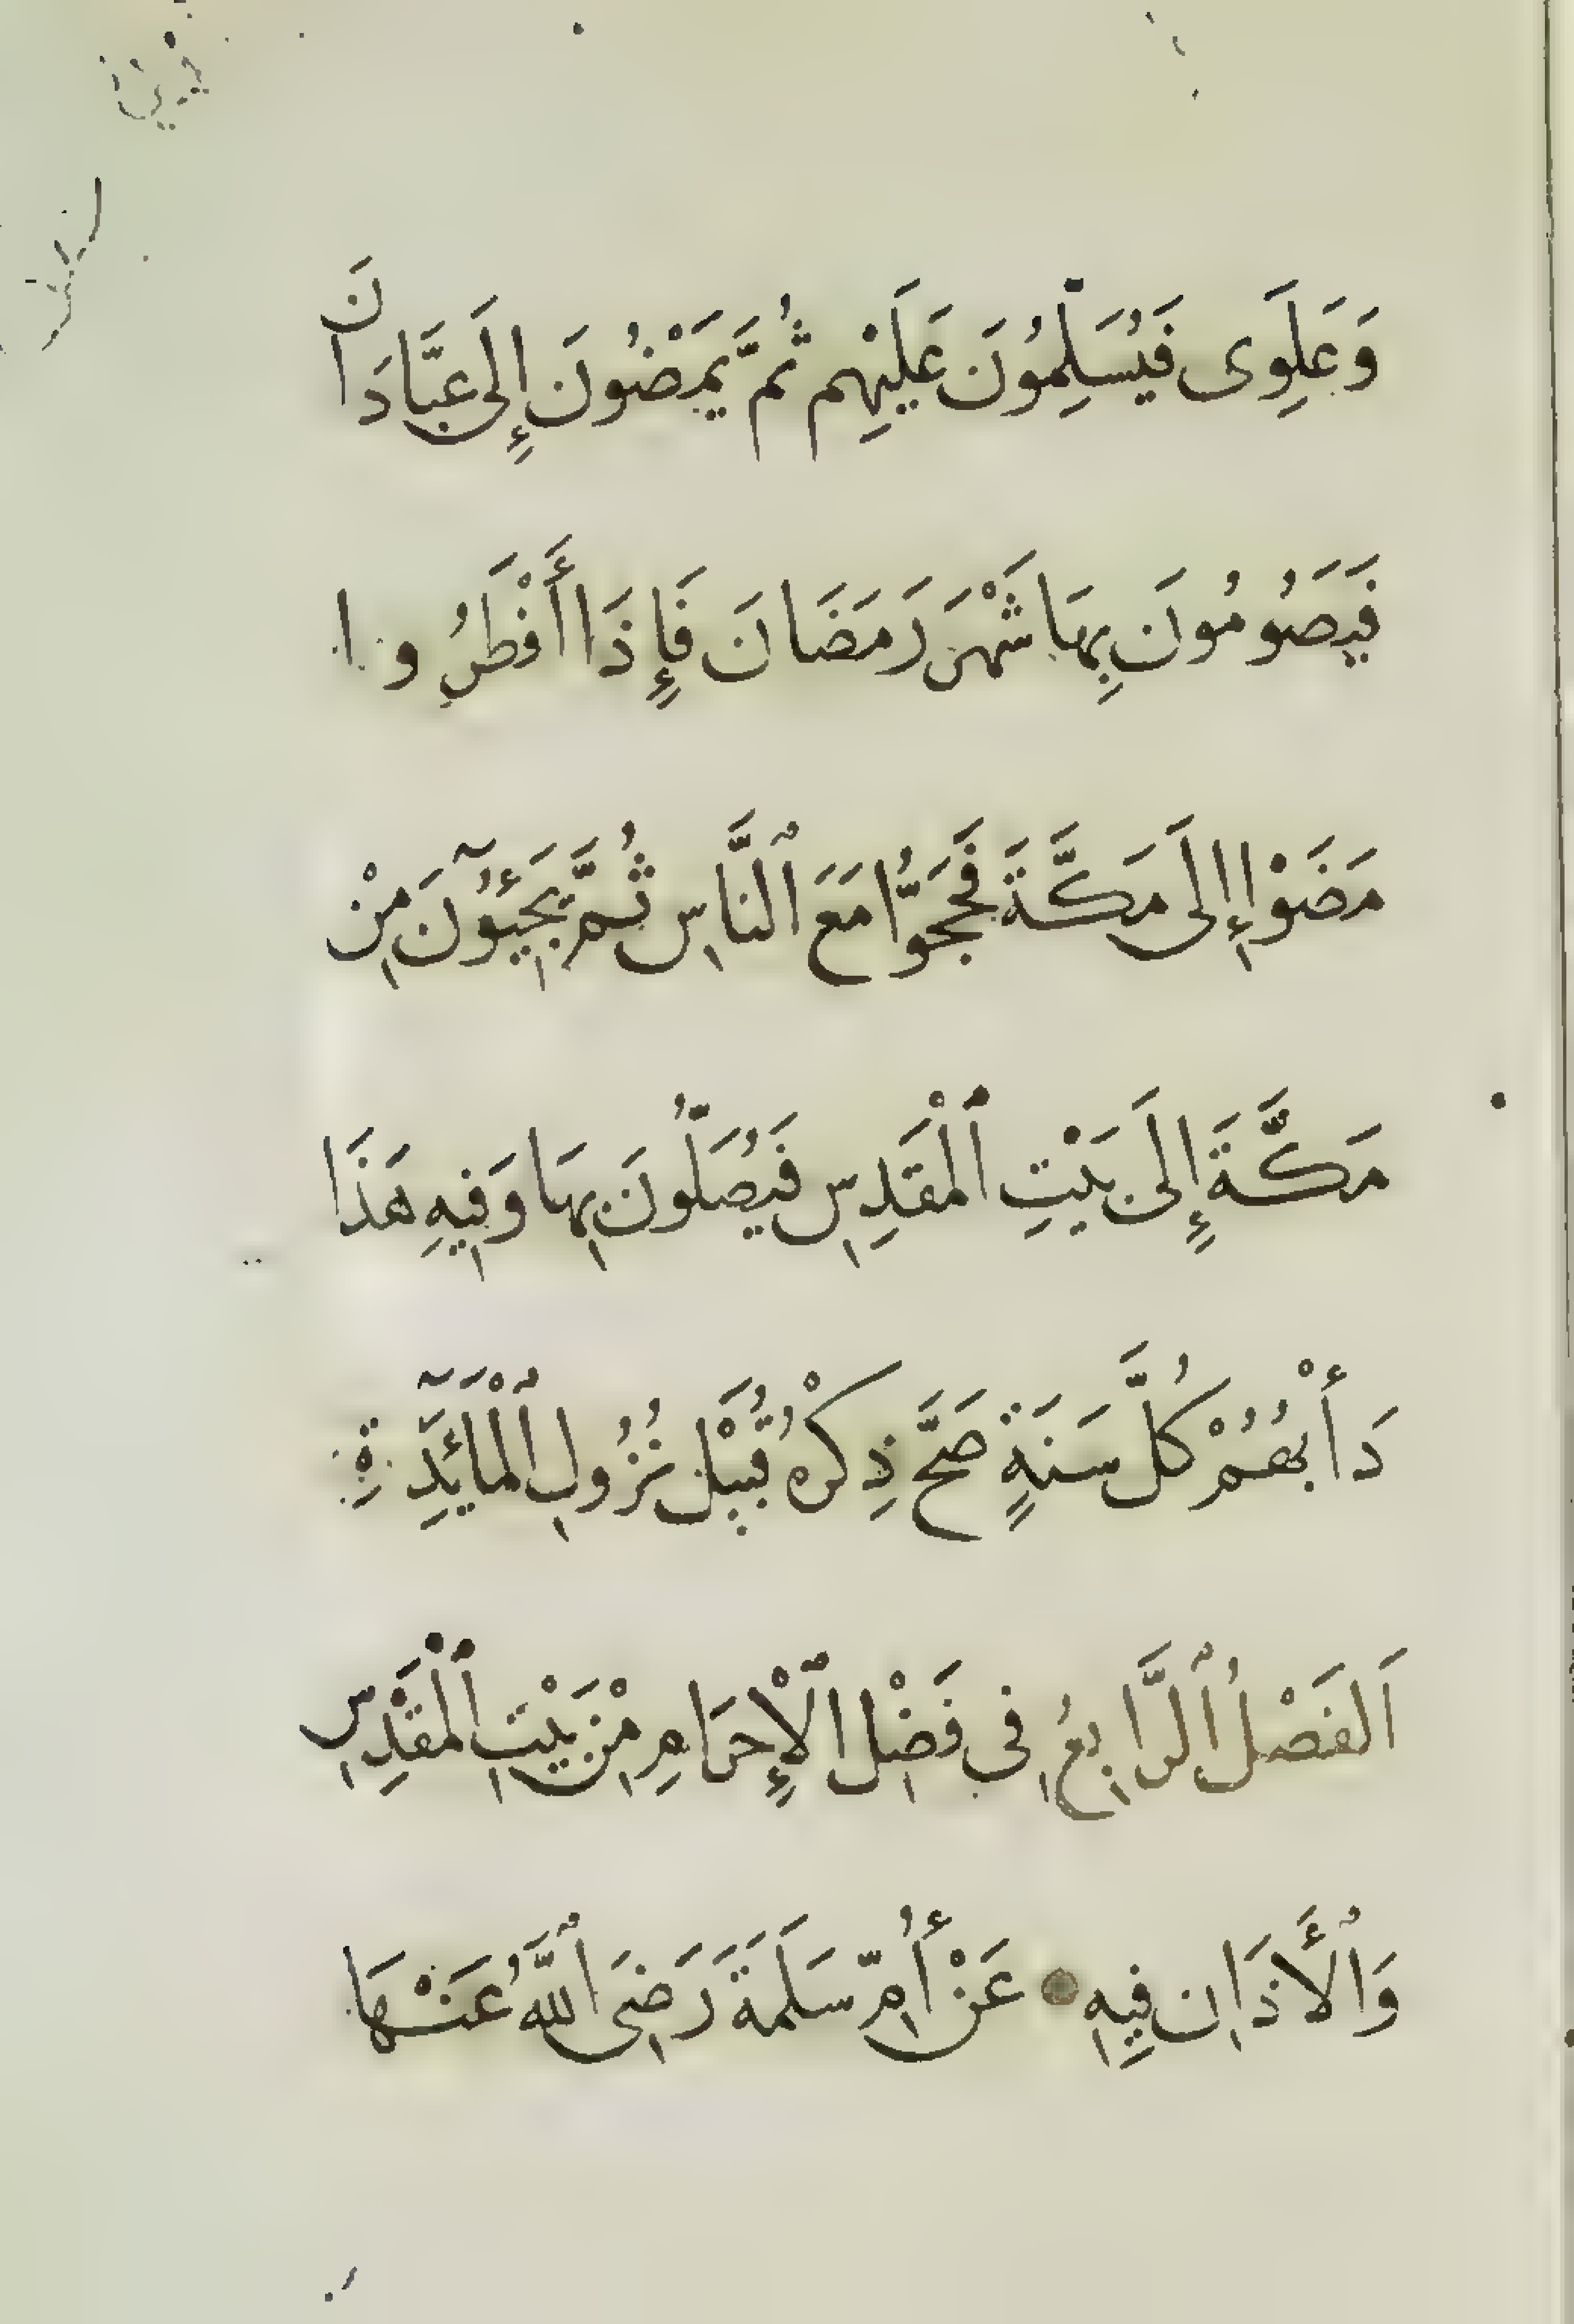 وَعَلِوَى فَيُسَلِّمُونَ عَلَيْهِم ثُمَّ يَمْضُونَ إِلَى عَبَّادَانَ
فَيَصُومُونَ بِهَا شَهْرَ رَمَضَانَ فَإِذَا أَفْطَرُوا
مَضَوْا إِلَى مَكَّةَ فَحَجُّوا مَعَ ٱلنَّاسِ ثُمَّ يَجِيَئُونَ مِنْ
مَكَّةَ إِلَى بَيْتِ ٱلْمَقْدِسِ فَيُصَلُّونَ بِهَا وَفِيهِ هَذَا
دَأْبُهُمْ كُلَّ سَنَةٍ صَحَّ ذِكْرُهُ قُبَيْلَ نُزُولِ ٱلْمَآئِدَةِ
اَلفَصْلُ ٱلرَّابِعُ فِي فَضْلِ ٱلْإِحْرَامِ مِنْ بَيْتِ ٱلْمَقْدِسِ
وَٱلْأَذَانِ فِيهِ عَنْ أُمِّ سَلَمَةَ رَضِيَ ٱللَّهُ عَنْهَا